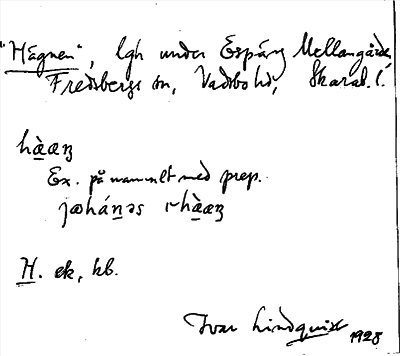 "Hägnen", lgh under Espång Mellangården
Fredsbergs sn, Vadsbo hd, Skarab. l.
hàæŋ
Ex. på namnet med prep.
johánəs i hàæŋ
H. ek, kb.
Ivar Lindquist 1928